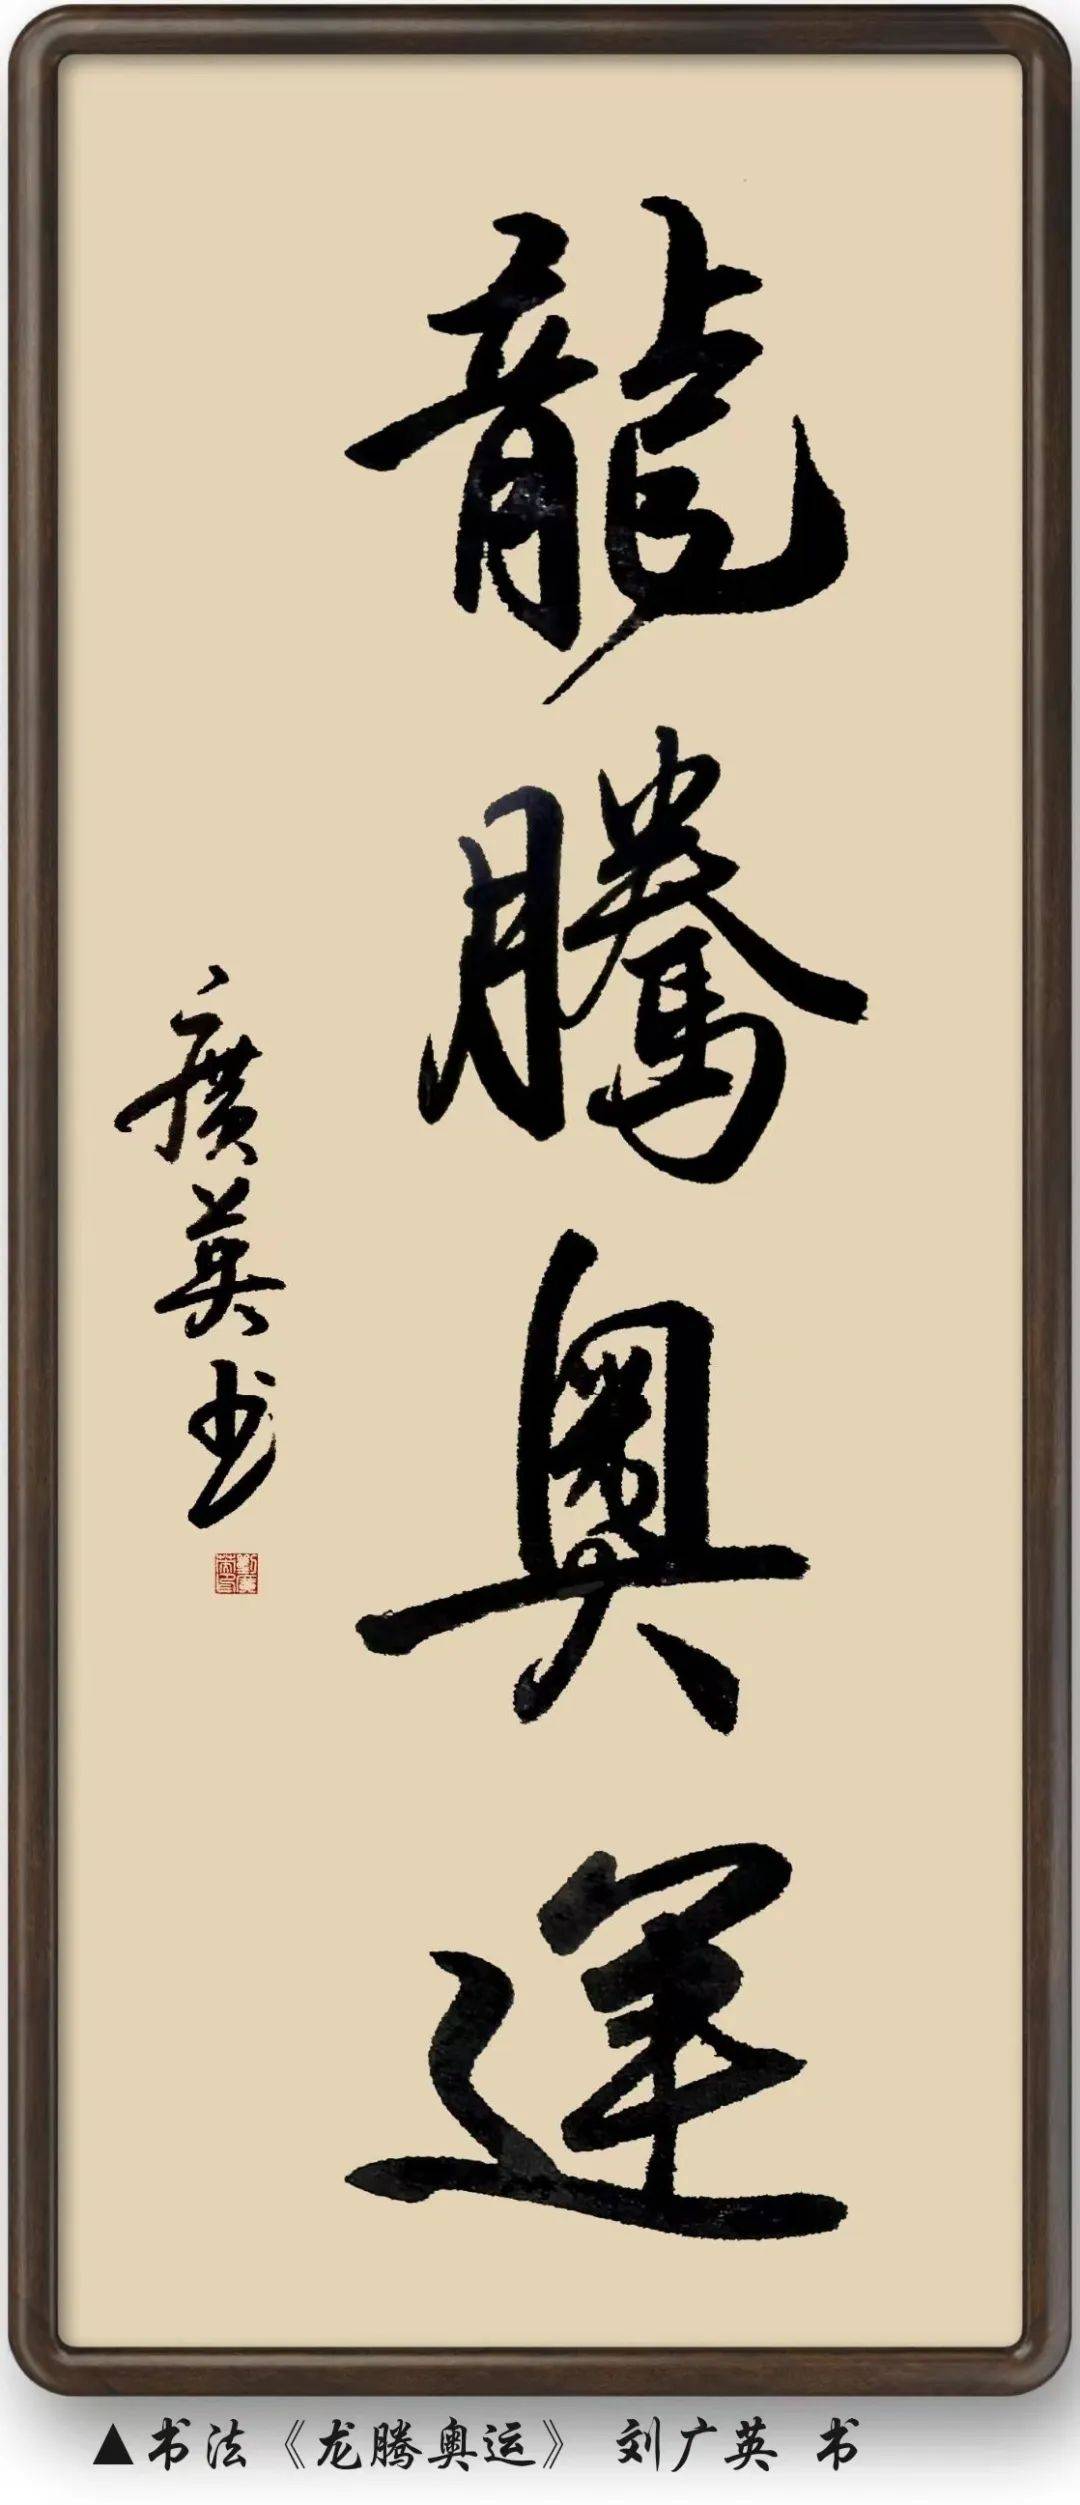 龍騰奥運
廣英书
▲书法《龙腾奥运》 刘广英 书